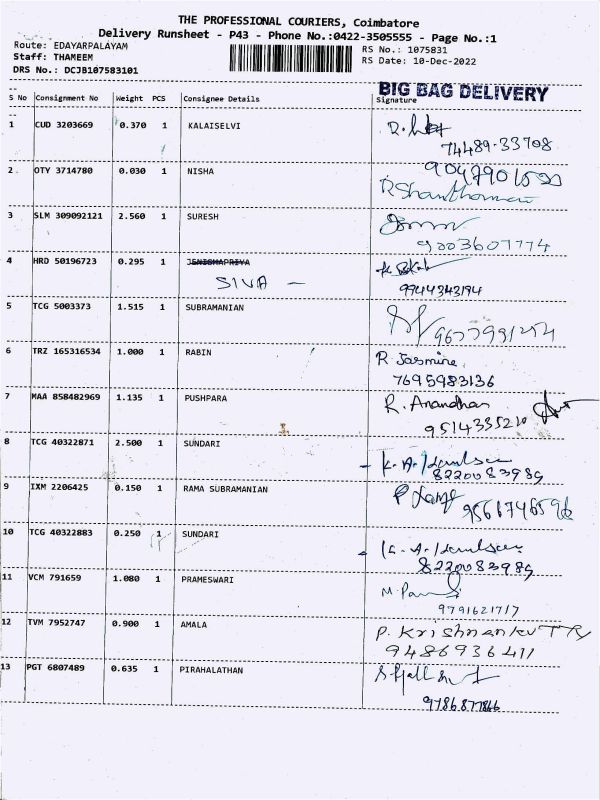 THE PROFESSIONAL COURIERS, Coimbatore
Delivery Runsheet - P43 - Phone No.:0422-3505555 - Page No.:1
Route: EDAYARPALAYAM RS No.: 1075831
Staff: THAMEEM RS Date: 10-Dec-2022
DRS No.: DCJB107583101
BIG BAG DELIVERY
S No Consignment No Weight PCS Consignee Details Signature
1 CUD 3203669 0.370 1 KALAISELVI
74489-33708
2 OTY 3714780 0.030 1 NISHA
3 SLM 309092121 2.560 1 SURESH
9003607774
4 HRD 50196723 0.295 1
SIVA -
9944343194
5 TCG 5003373 1.515 1 SUBRAMANIAN
6 TRZ 165316534 1.000 1 RABIN R Jasmine
7695983136
7 MAA 858482969 1.135 1 PUSHPARA R. Anandhan
9514335210
8 TCG 40322871 2.500 1 SUNDARI
8220083989
9 IXM 2206425 0.150 1 RAMA SUBRAMANIAN
10 TCG 40322883 0.250 1 SUNDARI
8220083989
11 VCM 791659 1.080 1 PRAMESWARI
9791621717
12 TVM 7952747 0.900 1 AMALA
9486936411
13 PGT 6807489 0.635 1 PIRAHALATHAN